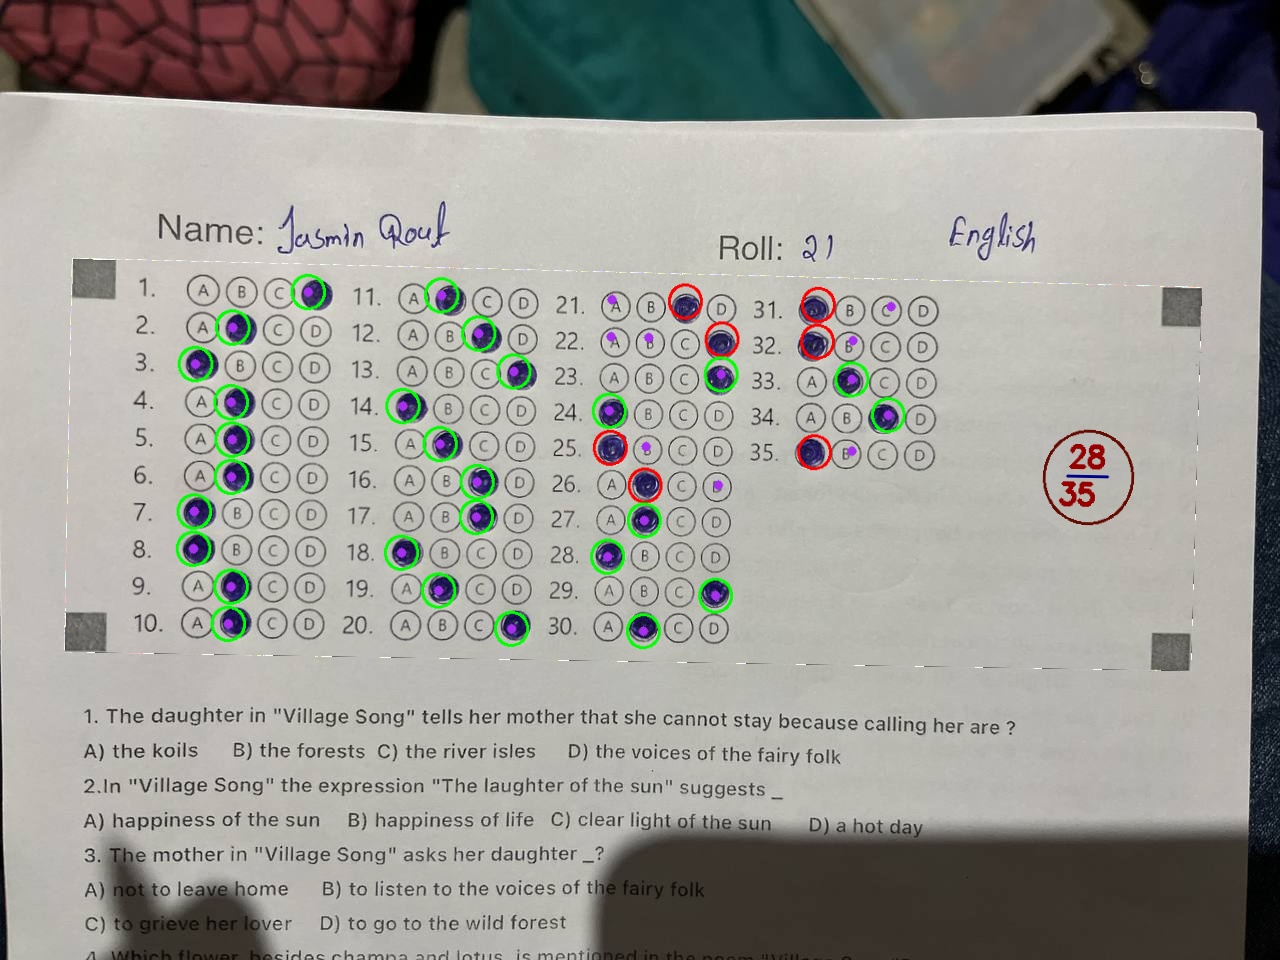 Name: Jasmin Rout Roll: 21 English
1. A B C 11. A C D 21. A B D 31. B C D
2. A C D 12. A B D 22. A B C 32. B C D
3. B C D 13. A B C 23. A B C 33. A C D
4. A C D 14. B C D 24. B C D 34. A B D
5. A C D 15. A C D 25. B C D 35. B C D
6. A C D 16. A B D 26. A C D
7. B C D 17. A B D 27. A C D
8. B C D 18. B C D 28. B C D
9. A C D 19. A C D 29. A B C
10. A C D 20. A B C 30. A C D
28
35
1. The daughter in "Village Song" tells her mother that she cannot stay because calling her are ?
A) the koils B) the forests C) the river isles D) the voices of the fairy folk
2.In "Village Song" the expression "The laughter of the sun" suggests _
A) happiness of the sun B) happiness of life C) clear light of the sun D) a hot day
3. The mother in "Village Song" asks her daughter _?
A) not to leave home B) to listen to the voices of the fairy folk
C) to grieve her lover D) to go to the wild forest
4. Which flower, besides champa and lotus, is mentioned in the poem "Village